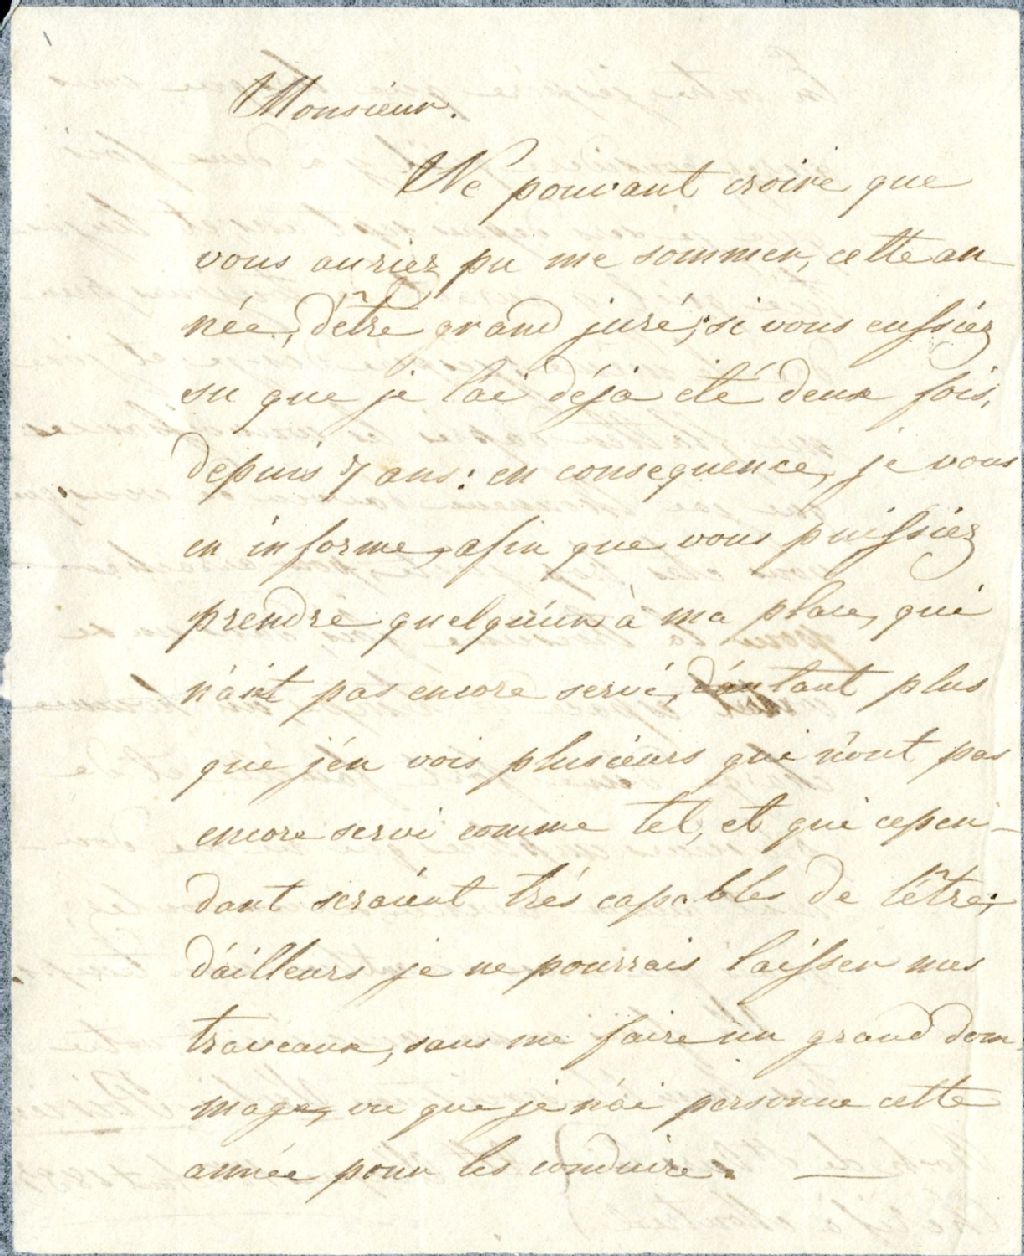 Monsieur.
Ne pouvant croire que
vous auriez pu me sommer, cette an-
née, d'être grand juré, si vous eussiez
su que je l'ai déja eté deux fois,
depuis 7 ans: en consequence, je vous
en informe, afin que vous puissiez
prendre quelqu'un à ma place, qui
n'ait pas encore servi, d'autant plus
que j'en vois plusieurs qui n'ont pas
encore servi comme tel, et qui cepen-
dant seraient très capables de l'être;
d'ailleurs je ne pourrais laisser mes
traveaux, sans me faire un grand dom-
mage, vu que je n'ai personne cette
année pour les conduire. —